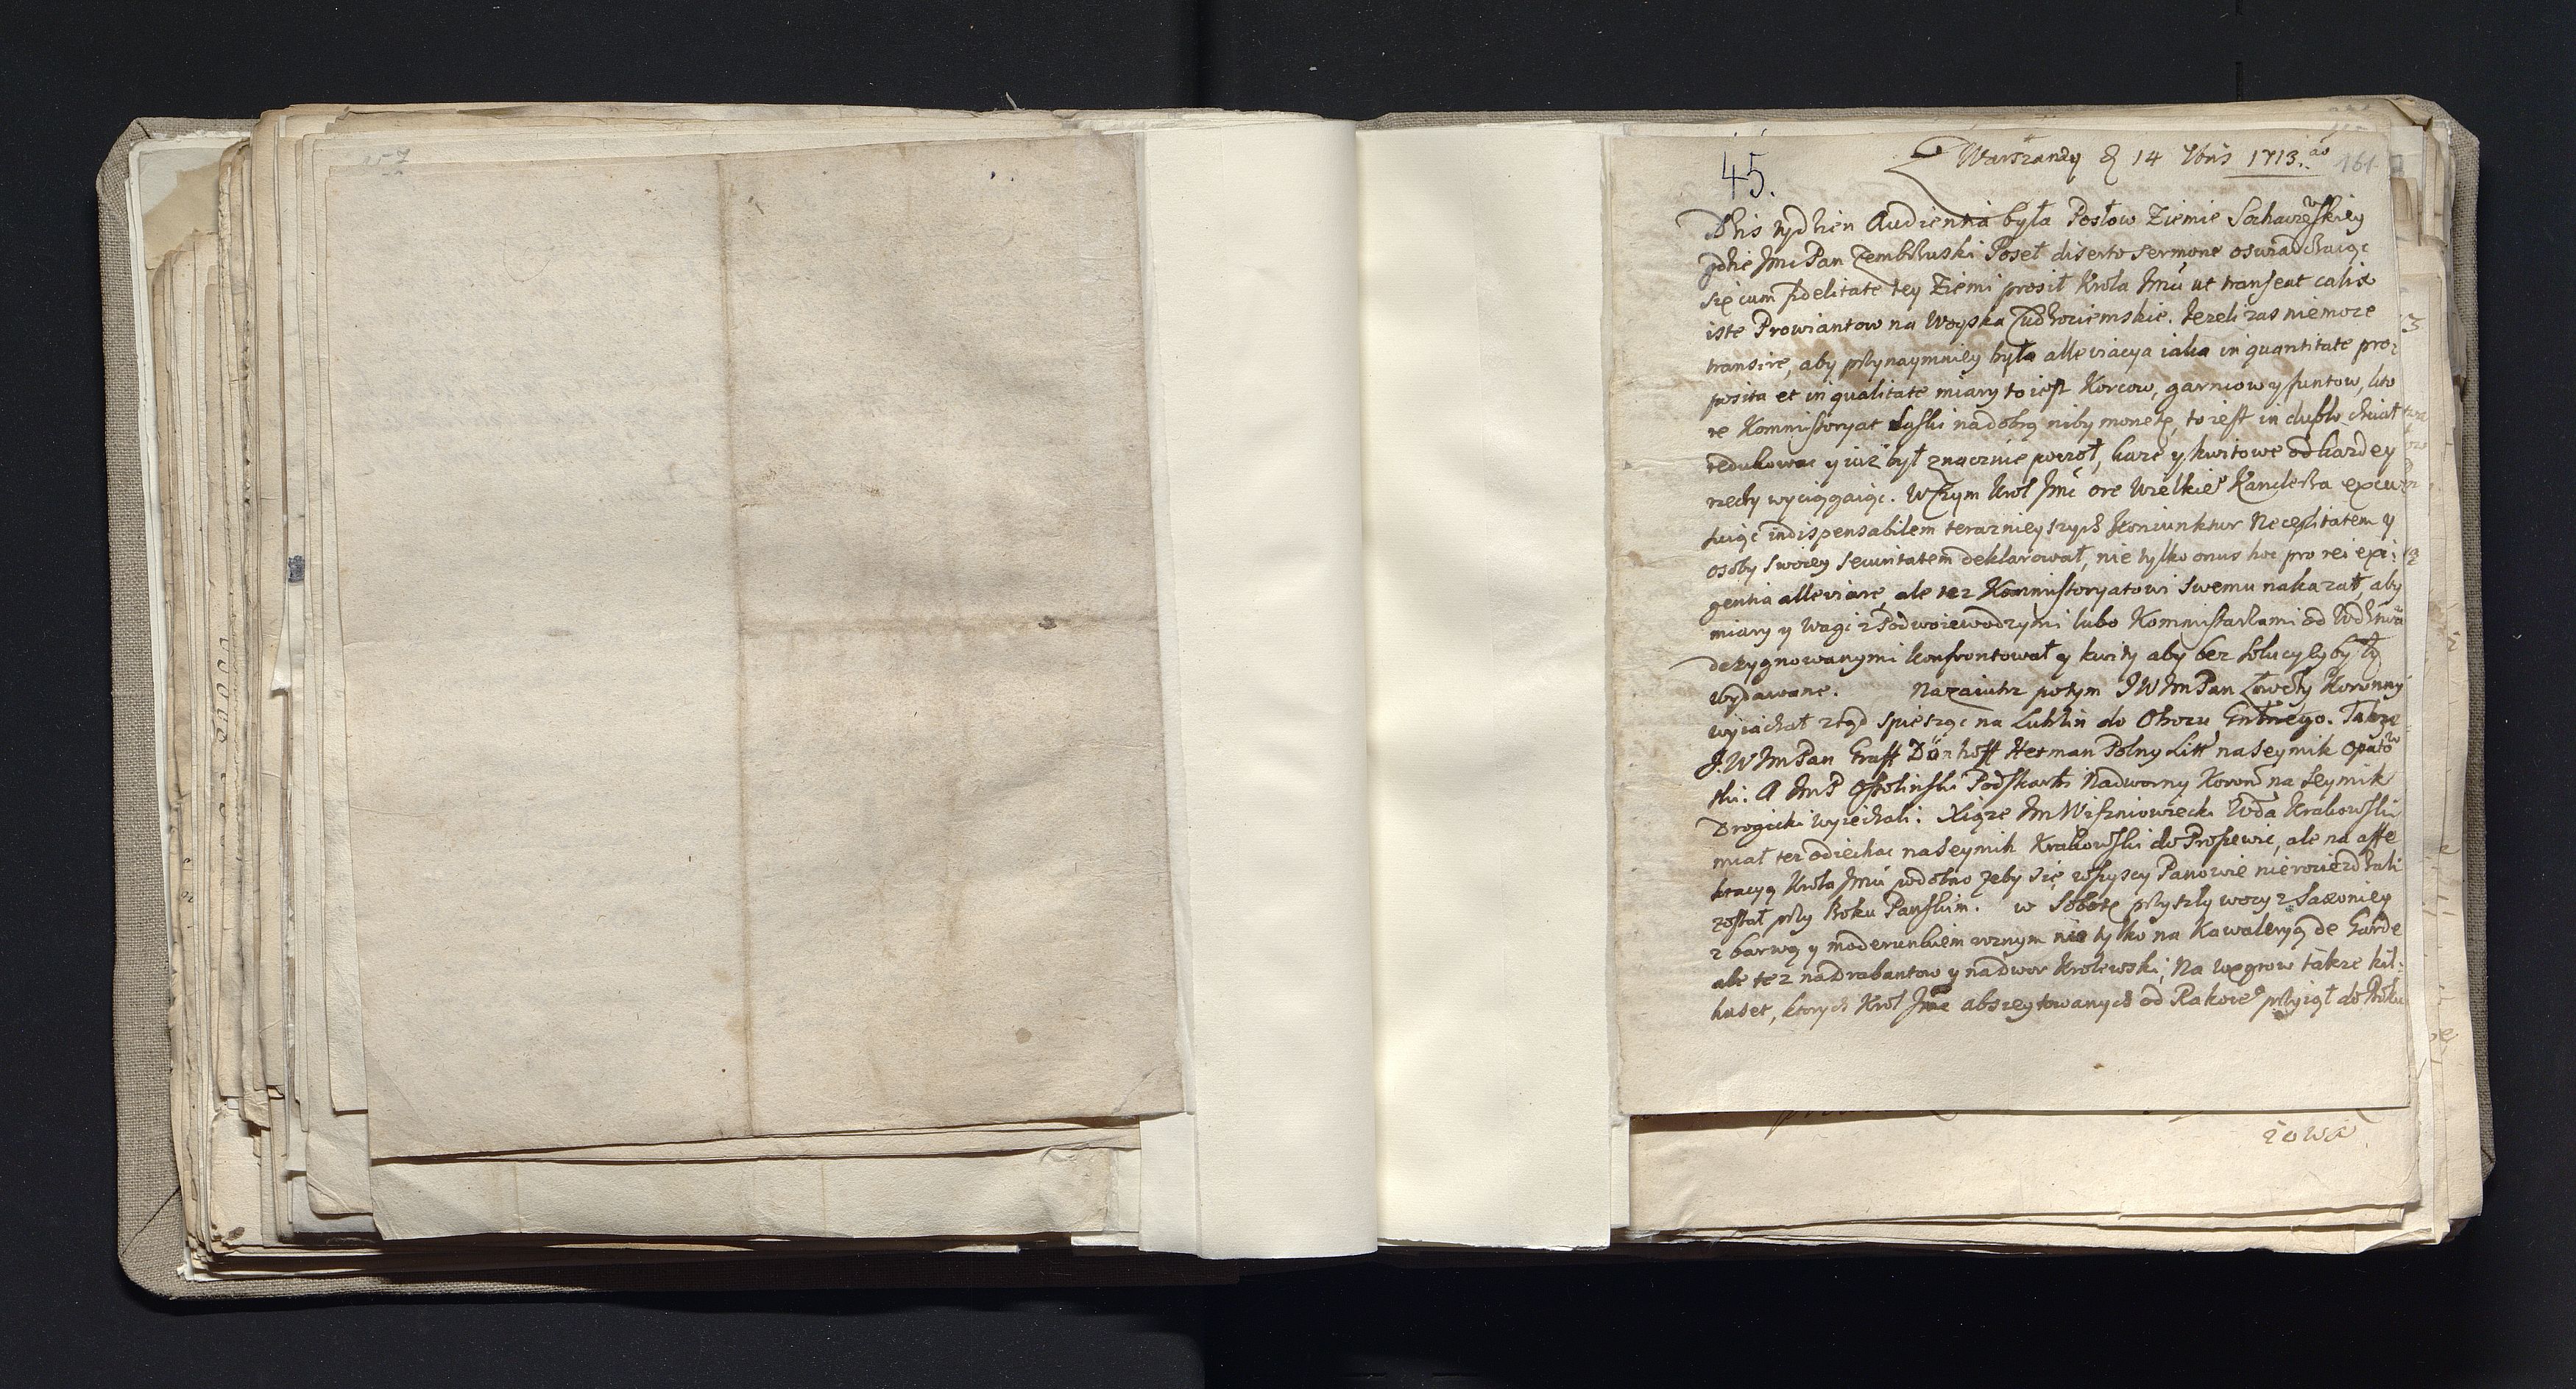 157
45.
Z Warszawy d 14 7bris 1713.ao 161
Dzis tydzien Audientia była Posłow Ziemie Sochaczewskiey
gdzie Jmc Pan Zembrzuski Poseł diserto sermone oswiadczaiąc
się cum fidelitate tey Ziemi prosił Krola Jmci ut transeat calix
iste Prowiantow na Woyska Cudzoziemskie. Jezeli zas niemoze
transire, aby przynaymniey była alleviacya iaka in quantitate pro:
posita et in qualitate miary to iest Korcow, garnicow y funtow, kto
re Kommissoryat Saski na dobrą niby monetę, to iest in duplo chciał
redukowac y iuz był znacznie począł, kaze y kwitowe od kazdey
rzeczy wyciągaiąc. W czym Krol Jmc ore Wielkie° Kanclerza excu
suiąc indispensabilem teraznieyszych Koniunktur Necessitatem y
osoby swoiey securitatem deklarował, nie tylko onus hoc pro rei exi:
gentia alleviare, ale tez Kommissoryatowi swemu nakazał, aby
miary y Wagi z Podwoiewodzymi lubo Kommissarzami od Wdztwa
dezygnowanymi konfrontował y kwity aby bez solucyi były
wydawane. Nazaiutrz potym JWJm Pan Łowczy Koronny
wyiachał ztąd spiesząc na Lublin do Obozu Gnlnego. Takze
J.WJm Pan Graff Dönhoff Hetman Polny Litt na seymik Opatow
ski. A JmP Ossolinski Podskarbi Nadworny Koron na Seymik
Drogicki wyiechali. Xiąze Jm Wiszniowiecki Wda Krakowski
miał tez odiechac na seymik Krakowski do Proszowic, ale na affe
ktacyą Krola Jmci podobno zeby się wszyscy Panowie nierozieżdzali
został przy Boku Panskim. w Sobotę przyszły wozy z Saxoniey
z barwą y moderunkiem roznym nie tylko na Kawaleryą de Garde
ale tez na Drabantow y na dwor Krolewski, Na Węgrow takze kil:
kuset, ktorych Krol Jmc abszeytowanych od Rakocе° przyiął do Boku